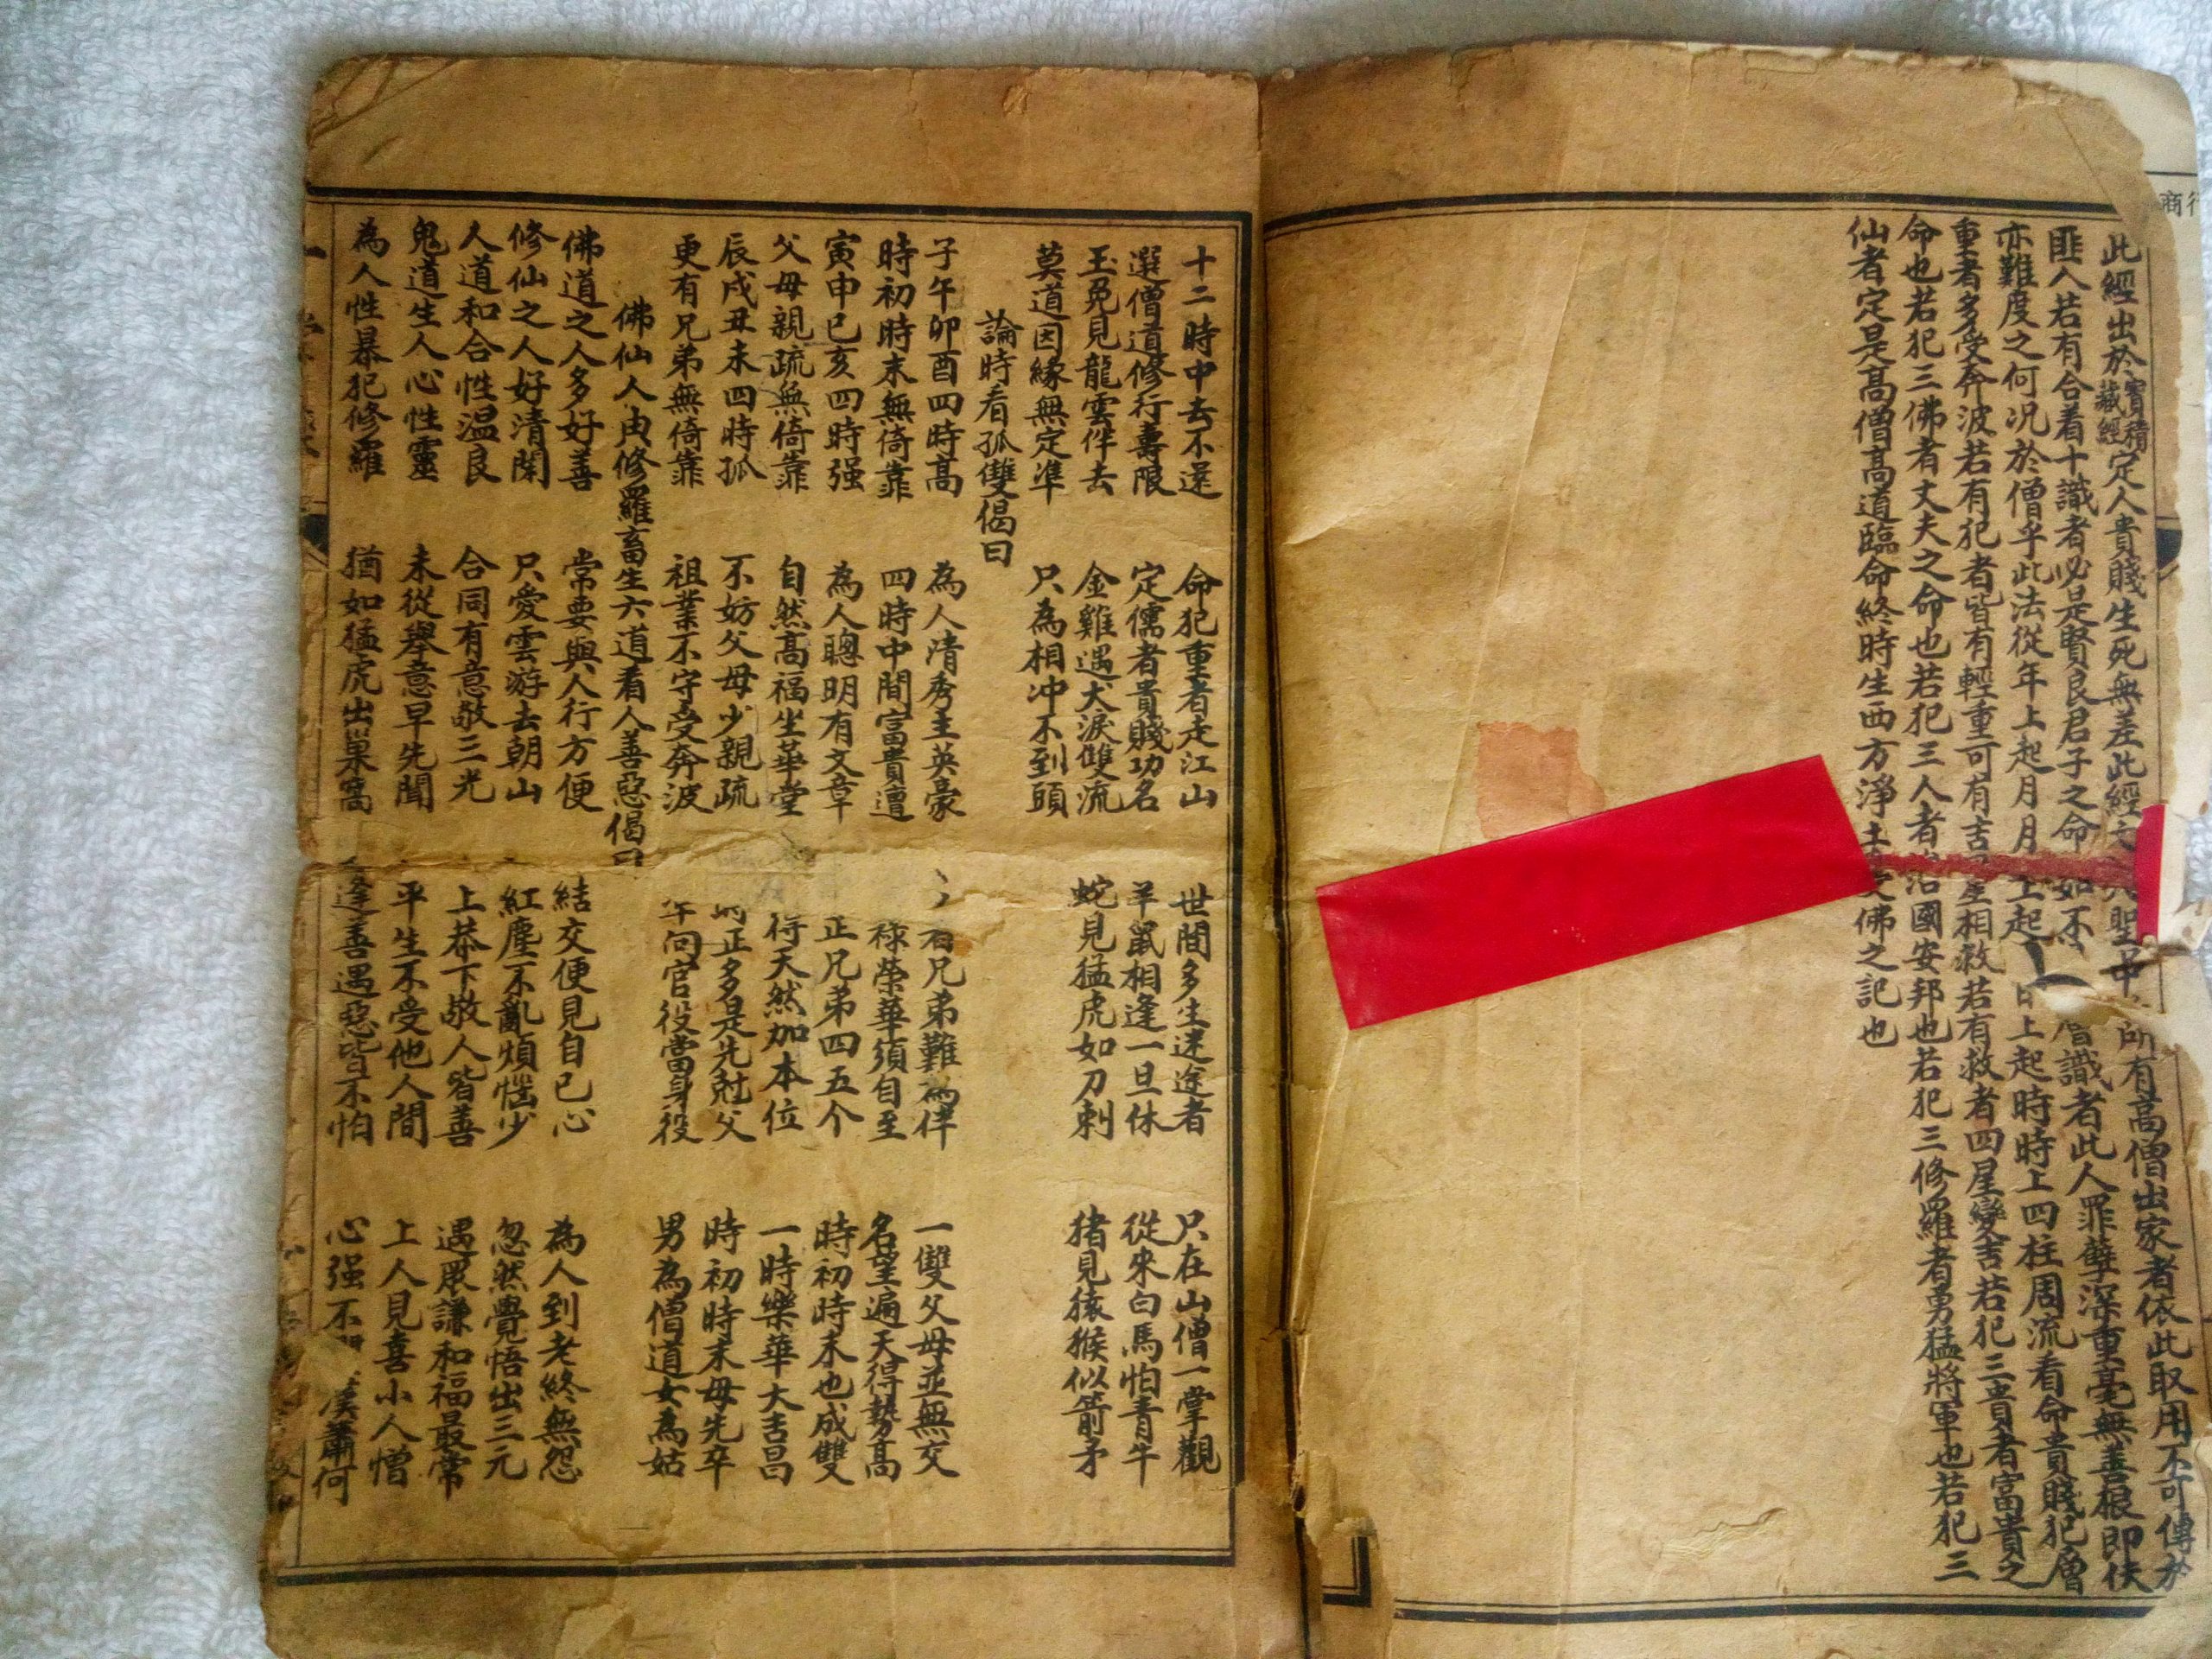 商行
此經出於寶積藏經定人貴賤生死無差此經 聖中 所有高僧出家者依此取用不可傳於
匪人若有合着十識者必是賢良君子之命如不 層識者此人罪孽深重毫無善根即佚
亦難度之何况於僧乎此法從年上起月月上起日日上起時時上四柱周流看命貴賤犯層
重者多受奔波若有犯者皆有輕重可有吉星相救若有救者四星變吉若犯三貴者富貴之
命也若犯三佛者丈夫之命也若犯三人者 治國安邦也若犯三修羅者勇猛將軍也若犯三
仙者定是高僧高道臨命終時生西方淨土 佛之記也
十二時中去不還 命犯重者走江山 世間多生迷途者 只在山僧一掌觀
選僧道修行壽限 定儒者貴賤功名 羊鼠相逢一旦休 從來白馬怕青牛
玉兔見龍雲伴去 金雞遇犬淚雙流 蛇見猛虎如刀刺 猪見猿猴似箭矛
莫道因緣無定準 只為相冲不到頭
論時看孤雙偈曰
子午卯酉四時高 為人清秀主英豪 有兄弟難為伴 一雙父母並無交
時初時末無倚靠 四時中間富貴遭 祿榮華須自至 名望遍天得勢高
寅申巳亥四時强 為人聰明有文章 正兄弟四五个 時初時末也成雙
父母親疏無倚靠 自然高福坐華堂 得天然加本位 一時樂華大吉昌
辰戌丑未四時孤 不妨父母少親疏 時正多是先尅父 時初時末母先卒
更有兄弟無倚靠 祖業不守受奔波 年问官役當身役 男為僧道女為姑
佛仙人鬼修羅畜生六道看人善惡偈曰
佛道之人多好善 常要與人行方便 結交便見自己心 為人到老終無怨
修仙之人好清閑 只愛雲游去朝山 紅塵不亂煩惱少 忽然覺悟出三元
人道和合性温良 合同有意敬三光 上恭下敬人皆善 遇眾謙和福最常
鬼道生人心性靈 未從舉意早先聞 平生不受他人間 上人見喜小人憎
為人性暴犯修羅 猶如猛虎出巢窩 逢善遇惡皆不怕 心强不 漢蕭何